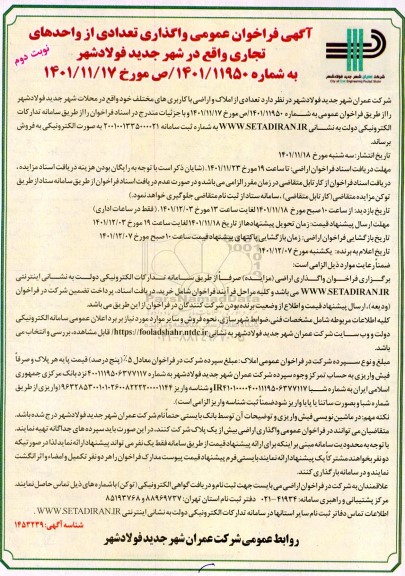 آگهی فراخوان عمومی واگذاری تعدادی از واحدهای
تجاری واقع در شهر جدید فولادشهر
به شماره ۱۴۰۱/۱۱۹۵۰/ص مورخ ۱۴۰۱/۱۱/۱۷
نوبت دوم
شرکت عمران شهر جدید فولادشهر
شرکت عمران شهر جدید فولادشهر در نظر دارد تعدادی از املاک و اراضی با کاربری های مختلف خود واقع در محلات شهر جدید فولادشهر
را از طریق فراخوان عمومی به شماره ۱۴۰۱/۱۱۹۵۰/ص مورخ ۱۴۰۱/۱۱/۱۷ و با جزئیات مندرج در اسناد فراخوان را از طریق سامانه تدارکات
الکترونیکی دولت به نشانی WWW.SETADIRAN.IR به شماره ثبت سامانه به صورت الکترونیکی به فروش
برساند.
تاریخ انتشار: سه شنبه مورخ ۱۴۰۱/۱۱/۱۸
مهلت دریافت اسناد فراخوان اراضی: تا ساعت ۱۹ مورخ ۱۴۰۱/۱۱/۲۳. (شایان ذکر است با توجه به رایگان بودن هزینه دریافت اسناد مزایده،
دریافت اسناد فراخوان از کارتابل متقاضی در زمان مقرر الزامی می باشد و در صورت عدم دریافت اسناد فراخوان از طریق سامانه ستاد از طریق
توکن مزایده متقاضی (کارتابل متقاضی)، سامانه ستاد از ثبت نام متقاضی جلوگیری خواهد نمود.)
تاریخ بازدید: از ساعت ۱۰ صبح مورخ ۱۴۰۱/۱۱/۱۸ لغایت ساعت ۱۳ مورخ ۱۴۰۱/۱۲/۰۳. (فقط در ساعات اداری)
مهلت ارسال پیشنهاد قیمت: زمان تحویل پیشنهادها از تاریخ ۱۴۰۱/۱۱/۱۸ لغایت ساعت ۱۹ مورخ ۱۴۰۱/۱۲/۰۳
تاریخ بازگشایی فراخوان اراضی: زمان بازگشایی پاکتهای پیشنهاد قیمت ساعت ۱۰ صبح مورخ ۱۴۰۱/۱۲/۰۷
تاریخ اعلام به برنده: یکشنبه مورخ ۱۴۰۱/۱۲/۰۷
ضمناً رعایت موارد ذیل الزامی است:
برگزاری فراخوان واگذاری اراضی (مزایده) صرفاً از طریق سامانه تدارکات الکترونیکی دولت به نشانی اینترنتی
WWW.SETADIRAN.IR می باشد و کلیه مراحل فرآیند فراخوان شامل خرید، دریافت اسناد، پرداخت تضمین شرکت در فراخوان
(ودیعه)، ارسال پیشنهاد قیمت و اطلاع از وضعیت برنده بودن شرکت کنندگان در فراخوان از این طریق می باشد.
کلیه اطلاعات مربوطه شامل مشخصات فنی، ضوابط شهرسازی، نحوه فروش و سایر موارد مورد نیاز بر برد اعلان عمومی سامانه الکترونیکی
دولت و وب سایت شرکت عمران شهر جدید فولادشهر به نشانی https://fooladshahr.ntdc.ir/ قابل مشاهده، بررسی و انتخاب می
باشد.
مبلغ و نوع سپرده شرکت در فراخوان عمومی املاک: مبلغ سپرده شرکت در فراخوان معادل ۵٪ (پنج درصد) قیمت پایه هر پلاک و صرفاً
فیش واریزی به حساب تمرکز وجوه سپرده شرکت عمران شهر جدید فولادشهر به شماره نزد بانک مرکزی جمهوری
اسلامی ایران به شماره شبا و شناسه واریز (واریزی از طریق
شماره شبا و بصورت ساتنا یا پایا واریز شود ضمناً ثبت شناسه واریز الزامی است).
نکته مهم: در ماشین نویسی فیش واریزی و توضیحات آن توسط بانک بایستی حتماً نام شرکت عمران شهر جدید فولادشهر درج شده باشد.
متقاضیان می توانند در فراخوان عمومی واگذاری اراضی بیش از یک پلاک شرکت کنند، در این صورت باید سپرده های جداگانه تهیه نمایند.
با توجه به محدودیت سامانه مبنی بر اینکه برای ارائه پیشنهاد قیمت از طریق سامانه فقط یک نفر می تواند پیشنهاد ارائه نماید لذا در صورتیکه
دو نفر بخواهند مشترکاً یک پیشنهاد ارائه نمایند بایستی فرم پیشنهاد قیمت پیوست مدارک فراخوان را هر دو نفر تکمیل و امضاء و اثر انگشت
نمایند و در سامانه بارگذاری کنند.
علاقمندان به شرکت در فراخوان اراضی می بایست جهت ثبت نام و دریافت گواهی الکترونیکی (توکن) با شماره های ذیل تماس حاصل نمایند.
مرکز پشتیبانی و راهبری سامانه: ۴۱۹۳۴-۰۲۱ دفتر ثبت نام استان تهران: ۸۸۹۶۹۷۳۷ و ۸۵۱۹۳۷۶۸
اطلاعات تماس دفاتر ثبت نام سایر استانها در سامانه تدارکات الکترونیکی دولت به نشانی اینترنتی WWW.SETADIRAN.IR.
شناسه آگهی: ۱۴۵۳۲۳۹
روابط عمومی شرکت عمران شهر جدید فولادشهر